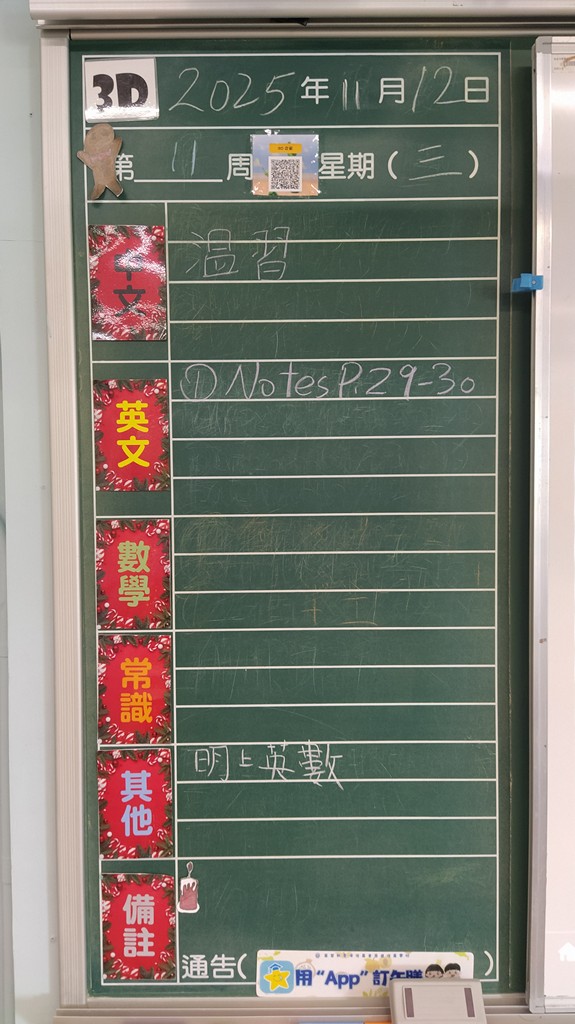 3D 2025年11月12日
第11周 星期(三)
中文 温習
英文 ①Notes P.29-30
數學
常識
其他 明上英數
備註
通告( 用“App”訂午膳 )